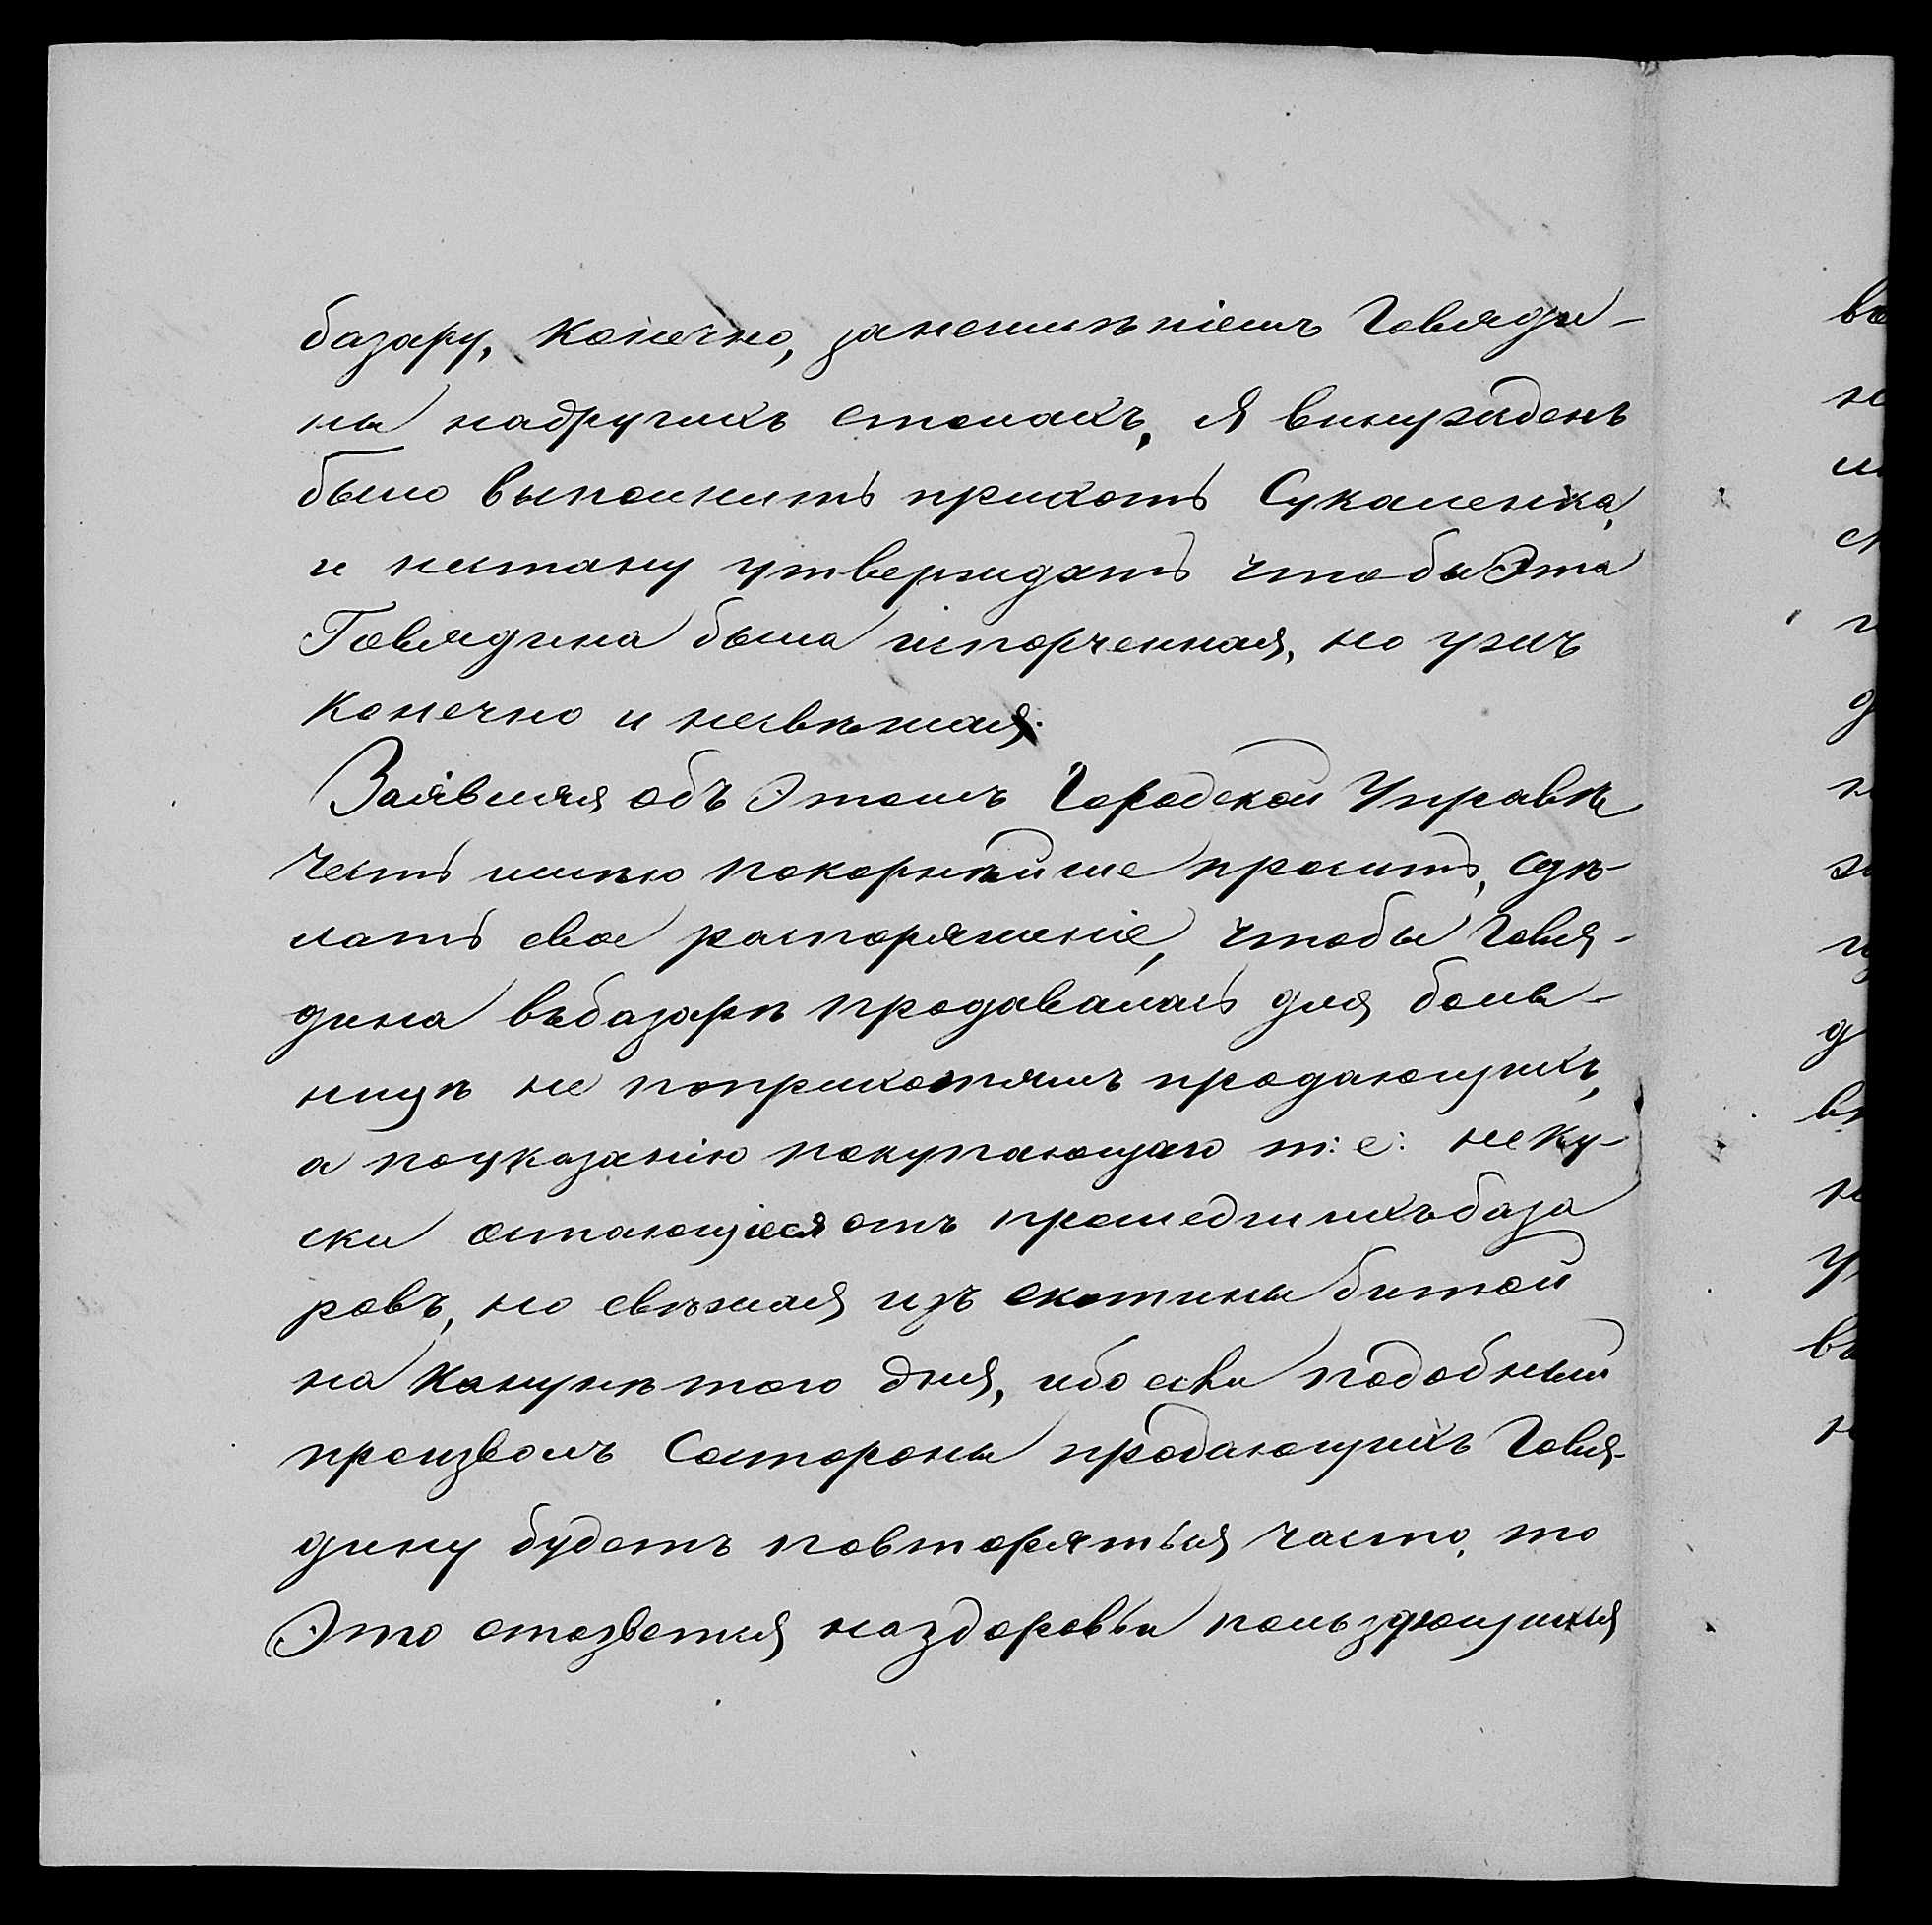 базару, Конечно, занеимѣніемъ Говяди-
ны надругихъ столахъ, я вынужденъ
было выполнить прихоть Сукаленка,
и нестану утверждать чтобы Эта
Говядина была испорченная, но ужъ
Конечно и несвѣжая.
Заявляя объ Этомъ Городской Управѣ
Честь имѣю покорнѣйше просить, сдѣ-
лать свое распоряженіе, чтобы Говя-
дина въбазарѣ продавалась для боль-
ницѣ не поприхотямъ продающихъ,
а поуказанію покупающаго т: е: не ку-
ски остающіеся отъ прошедшихъ база
ровъ, но свѣжая изъ скотины битой
на Канунѣ того дня, ибо если подобный
произволъ Состороны продающихъ Говя-
дину будетъ повторяться часто, то
Это отозвется наздоровьи пользующихся